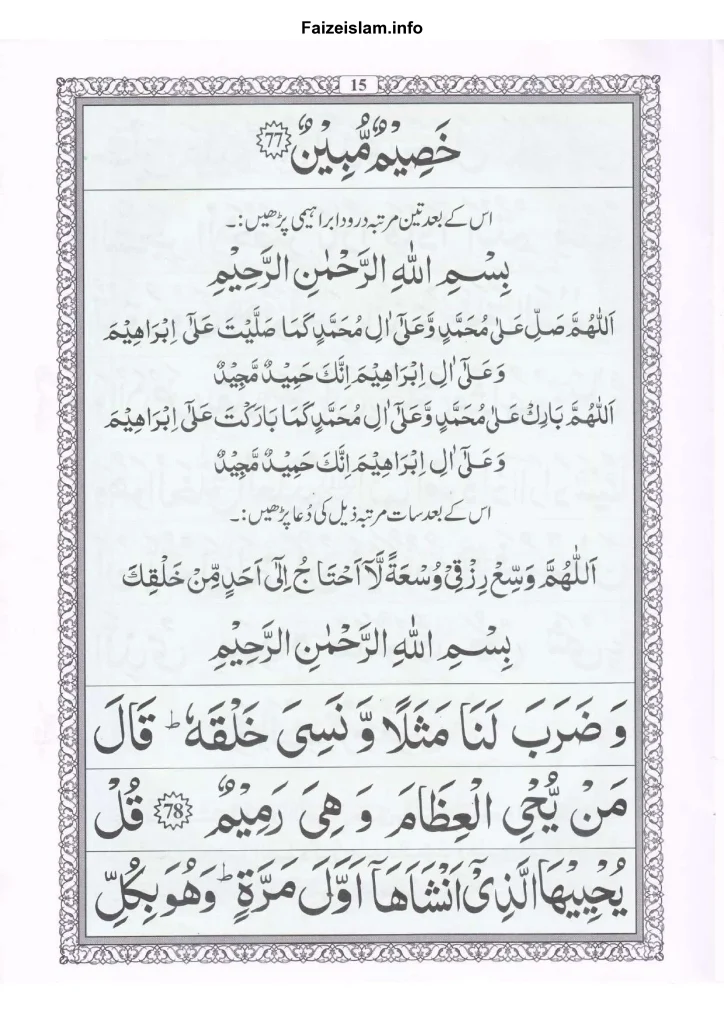 Faizeislam.info
15
خَصِیْمٌ مُّبِیْنٌ 77
اس کے بعد تین مرتبہ درود ابراہیمی پڑھیں:۔
بِسْمِ اللّٰهِ الرَّحْمٰنِ الرَّحِیْمِ
اَللّٰهُمَّ صَلِّ عَلٰی مُحَمَّدٍ وَّعَلٰٓی اٰلِ مُحَمَّدٍ کَمَا صَلَّیْتَ عَلٰٓی اِبْرَاهِیْمَ
وَعَلٰٓی اٰلِ اِبْرَاهِیْمَ اِنَّكَ حَمِیْدٌ مَّجِیْدٌ
اَللّٰهُمَّ بَارِكْ عَلٰی مُحَمَّدٍ وَّعَلٰٓی اٰلِ مُحَمَّدٍ کَمَا بَارَکْتَ عَلٰٓی اِبْرَاهِیْمَ
وَعَلٰٓی اٰلِ اِبْرَاهِیْمَ اِنَّكَ حَمِیْدٌ مَّجِیْدٌ
اس کے بعد سات مرتبہ ذیل کی دُعا پڑھیں:۔
اَللّٰهُمَّ وَسِّعْ رِزْقِیْ وُسْعَةً لَّآ اَحْتَاجُ اِلٰٓی اَحَدٍ مِّنْ خَلْقِكَ
بِسْمِ اللّٰهِ الرَّحْمٰنِ الرَّحِیْمِ
وَ ضَرَبَ لَنَا مَثَلًا وَّ نَسِیَ خَلْقَهٗ ؕ قَالَ
مَنْ یُّحْیِ الْعِظَامَ وَ هِیَ رَمِیْمٌ 78 قُلْ
یُحْیِیْهَا الَّذِیْٓ اَنْشَاَهَاۤ اَوَّلَ مَرَّةٍ ؕ وَهُوَ بِكُلِّ